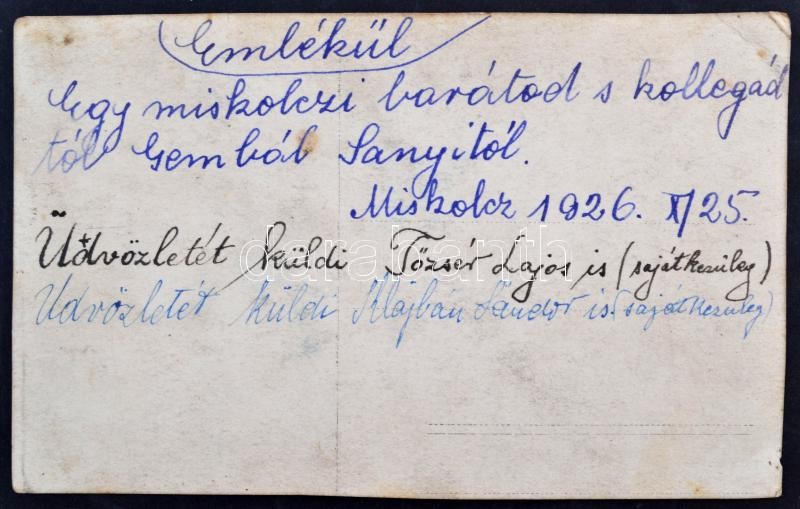 Emlékül
Egy miskolczi barátod s kollegád
tól Gembál Sanyitól.
Miskolcz 1926. X/25.
Üdvözletét küldi Tőzsér Lajos is (sajátkezűleg)
Üdvözletét küldi Klajbán Sándor is (sajátkezűleg)
darabanth